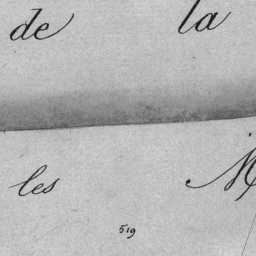 de la
les M
519